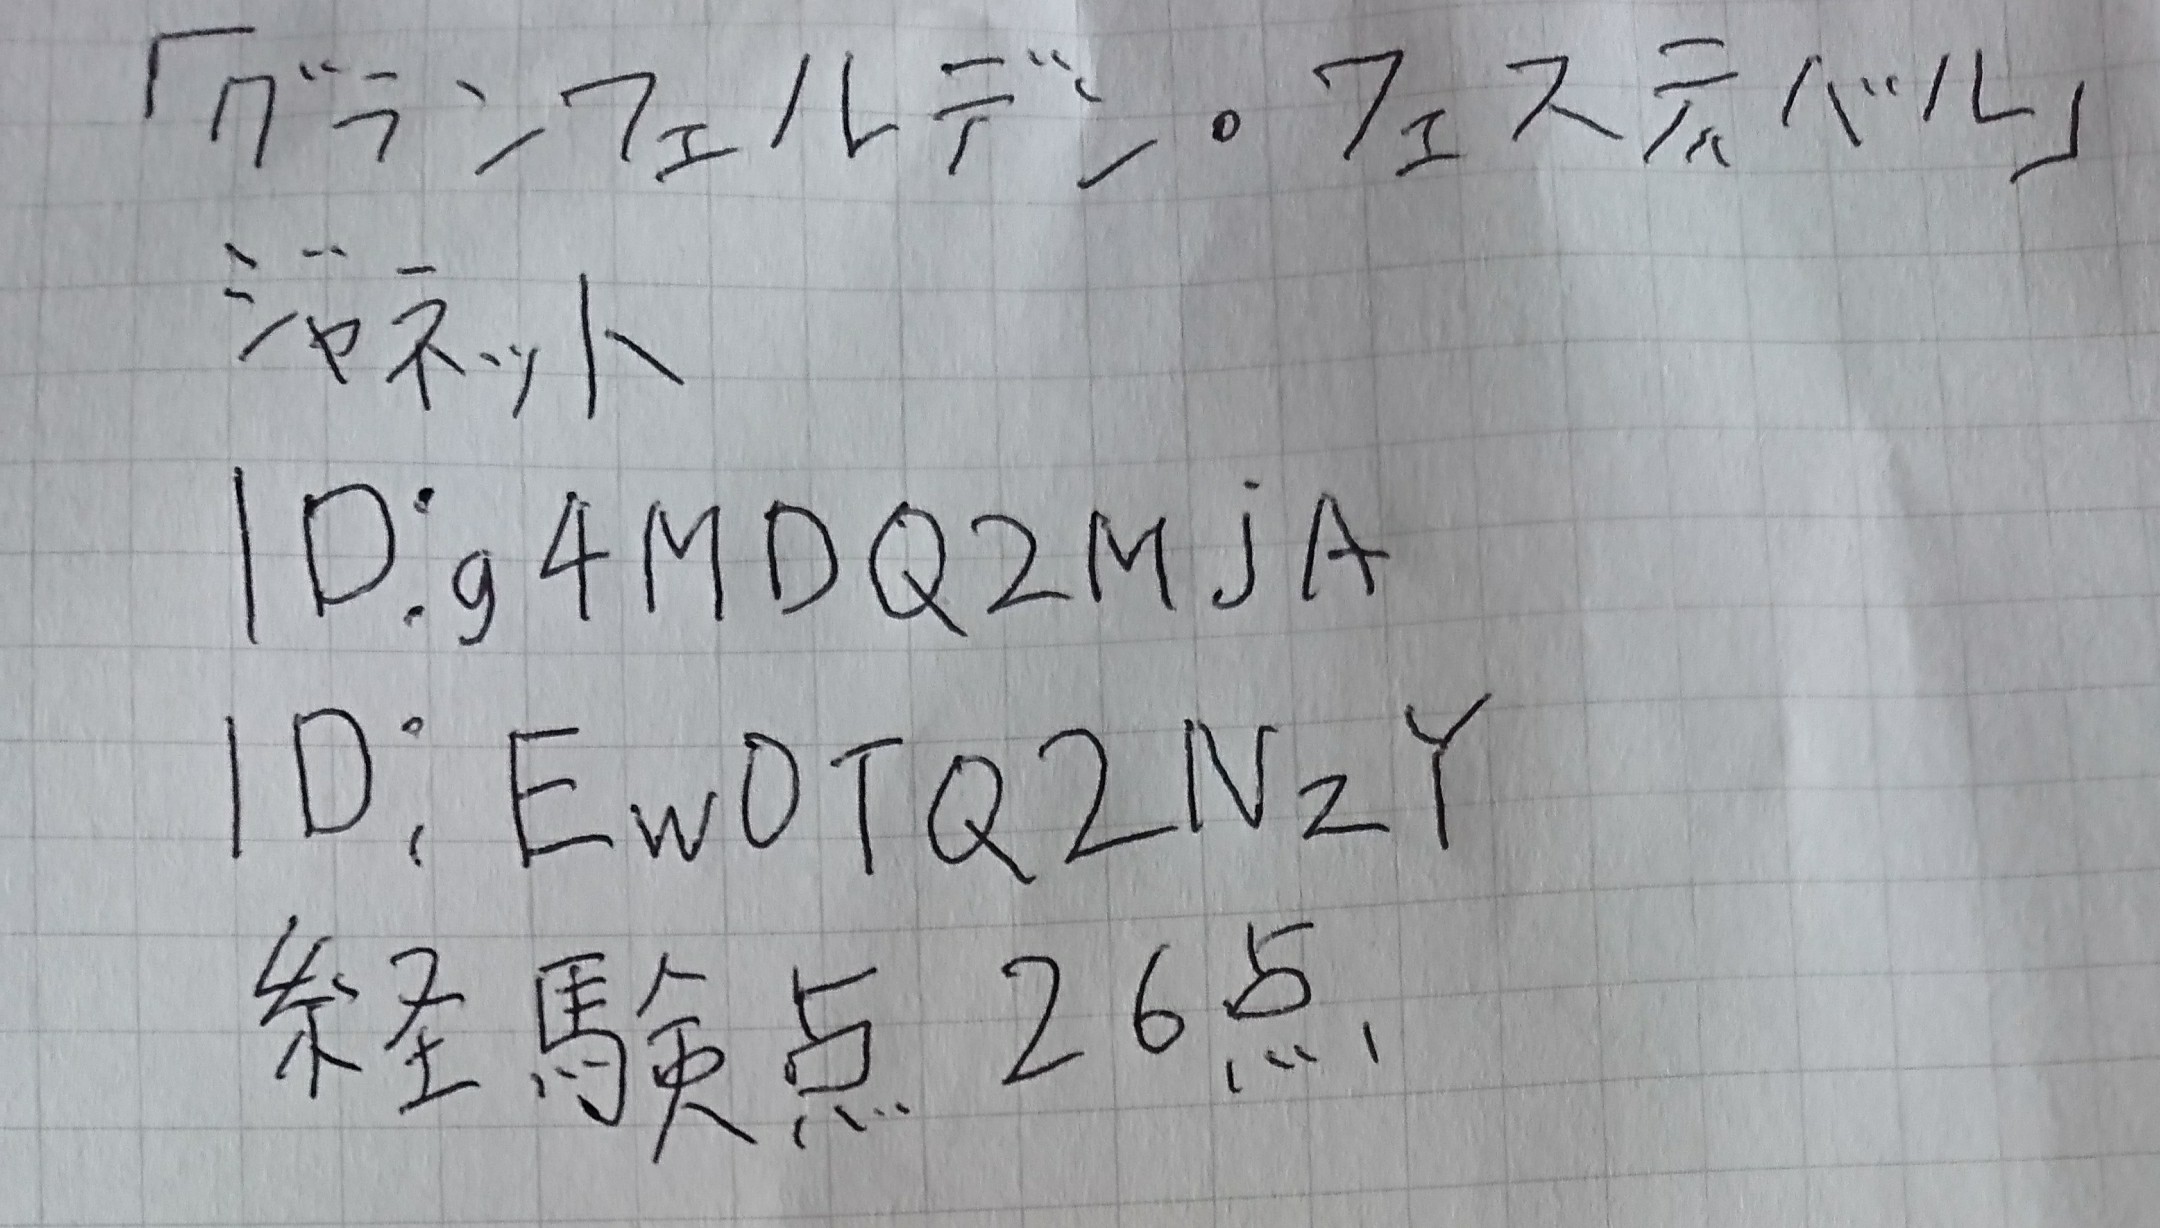 「グランフェルデン。フェスティバル」
ジャネット
ID:g4MDQ2MjA
ID:Ew0TQ2NzY
経験点 26点